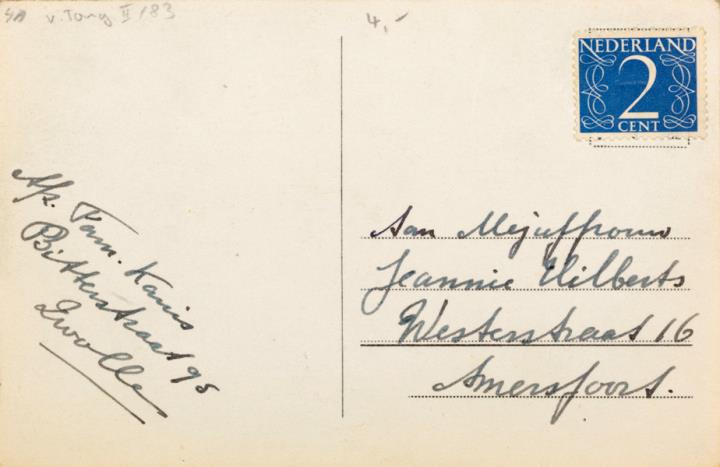 v. Tong II /83
4,-
NEDERLAND
2
CENT
Afz. Fam. Kanis
Bitterstraat 95
Zwolle
Aan Mejuffrouw
Jeannie Hilberts
Westerstraat 16
Amersfoort.